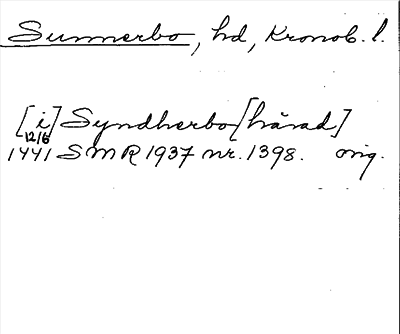 Sunnerbo, hd, Kronob. l.
[i] Syndherbo [härad]
12/6
1441 SMR 1937 nr. 1398. orig.